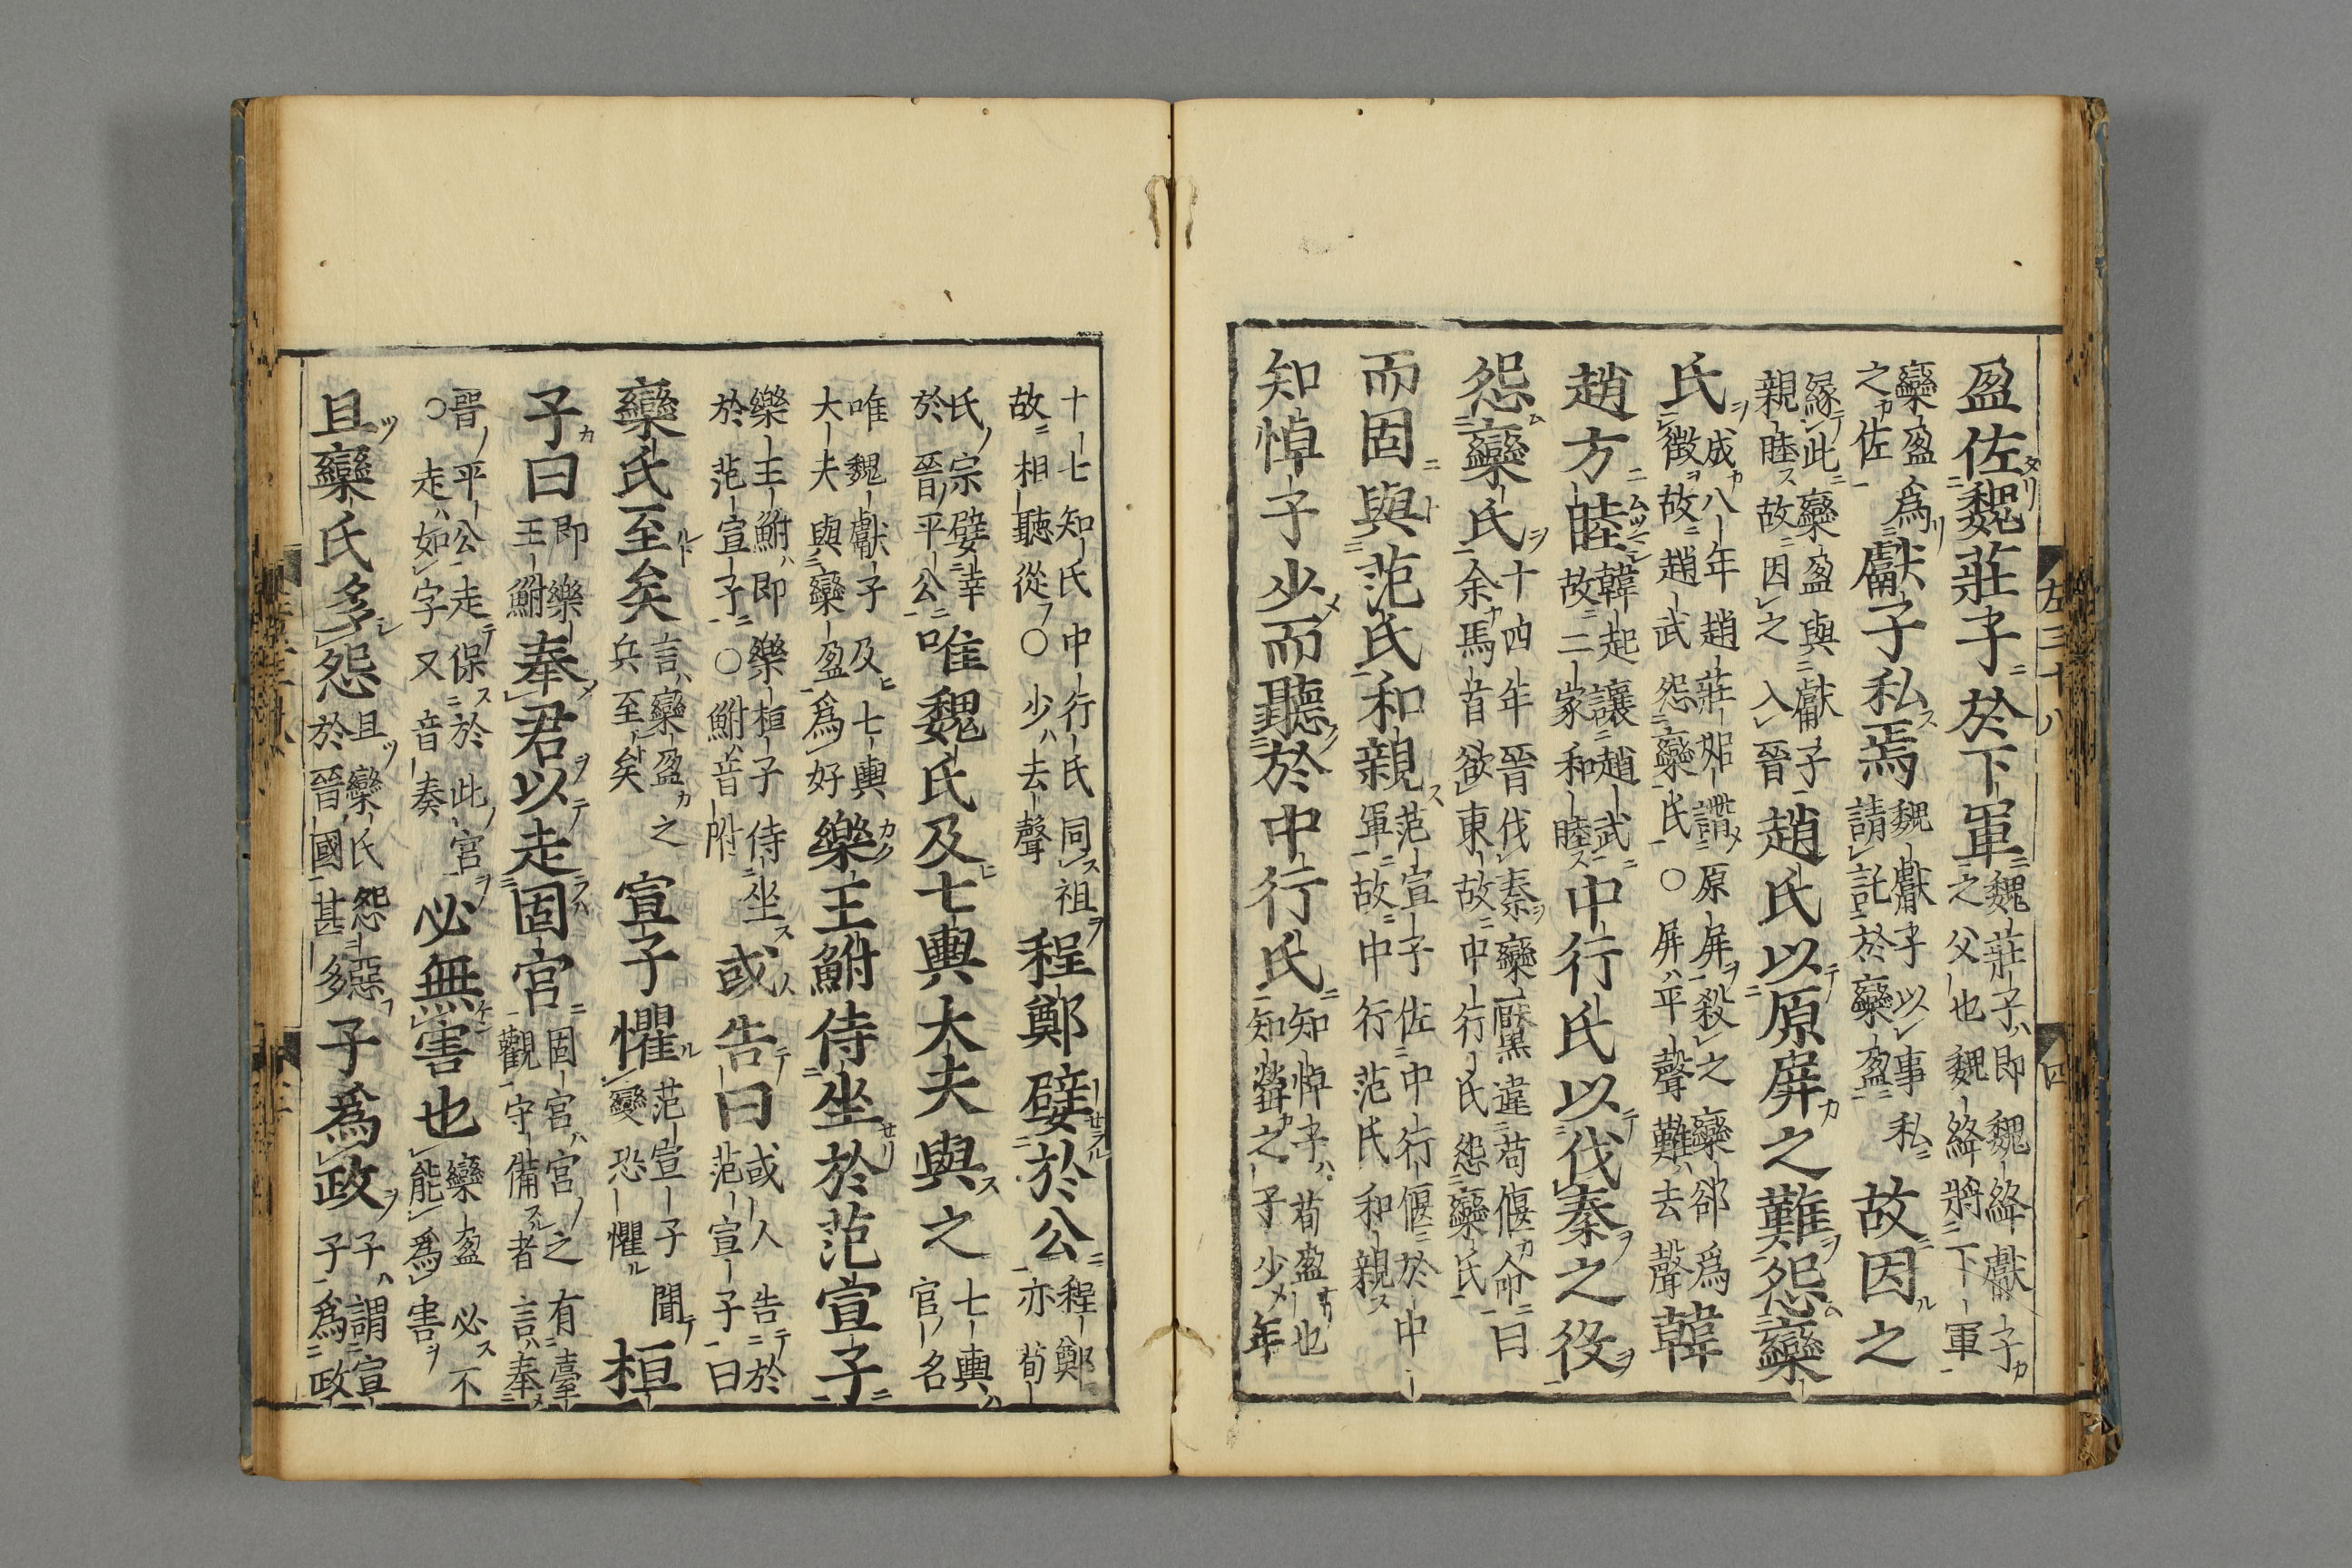 盈佐魏莊子於下軍魏莊子即魏絳獻子之父也魏絳將下軍
欒盈爲之佐獻子私焉魏獻子以事請託於欒盈私故因之
緣此欒盈與獻子親睦故因之入晉趙氏以原屏之難怨欒
氏成八年趙莊姬譖原屏殺之欒郤爲徵故趙武怨欒氏○屏平聲難去聲韓
趙方睦韓起讓趙武故二家和睦中行氏以伐秦之役
怨欒氏十四年晉伐秦欒黶違荀偃命曰余馬首欲東故中行氏怨欒氏
而固與范氏和親范宣子佐中行偃於中軍故中行范氏和親
知悼子少而聽於中行氏知悼子荀盈也知罃之子少年
十七知氏中行氏同祖故相聽從○少去聲程鄭嬖於公程鄭亦荀
氏宗嬖幸於晉平公唯魏氏及七輿大夫與之七輿官名
唯魏獻子及七輿大夫與欒盈爲好樂王鮒侍坐於范宣子
樂王鮒即樂桓子侍坐於范宣子○鮒音附或告曰或人告於范宣子曰
欒氏至矣言欒盈之兵至矣宣子懼范宣子聞變恐懼桓
子曰即樂王鮒奉君以走固宮固宮宮之有臺觀守備者言奉
晉平公走保於此宮○走如字又音奏必無害也欒盈必不能爲害
且欒氏多怨且欒氏於晉國甚多怨惡子爲政子謂宣子爲政
左三十八
四